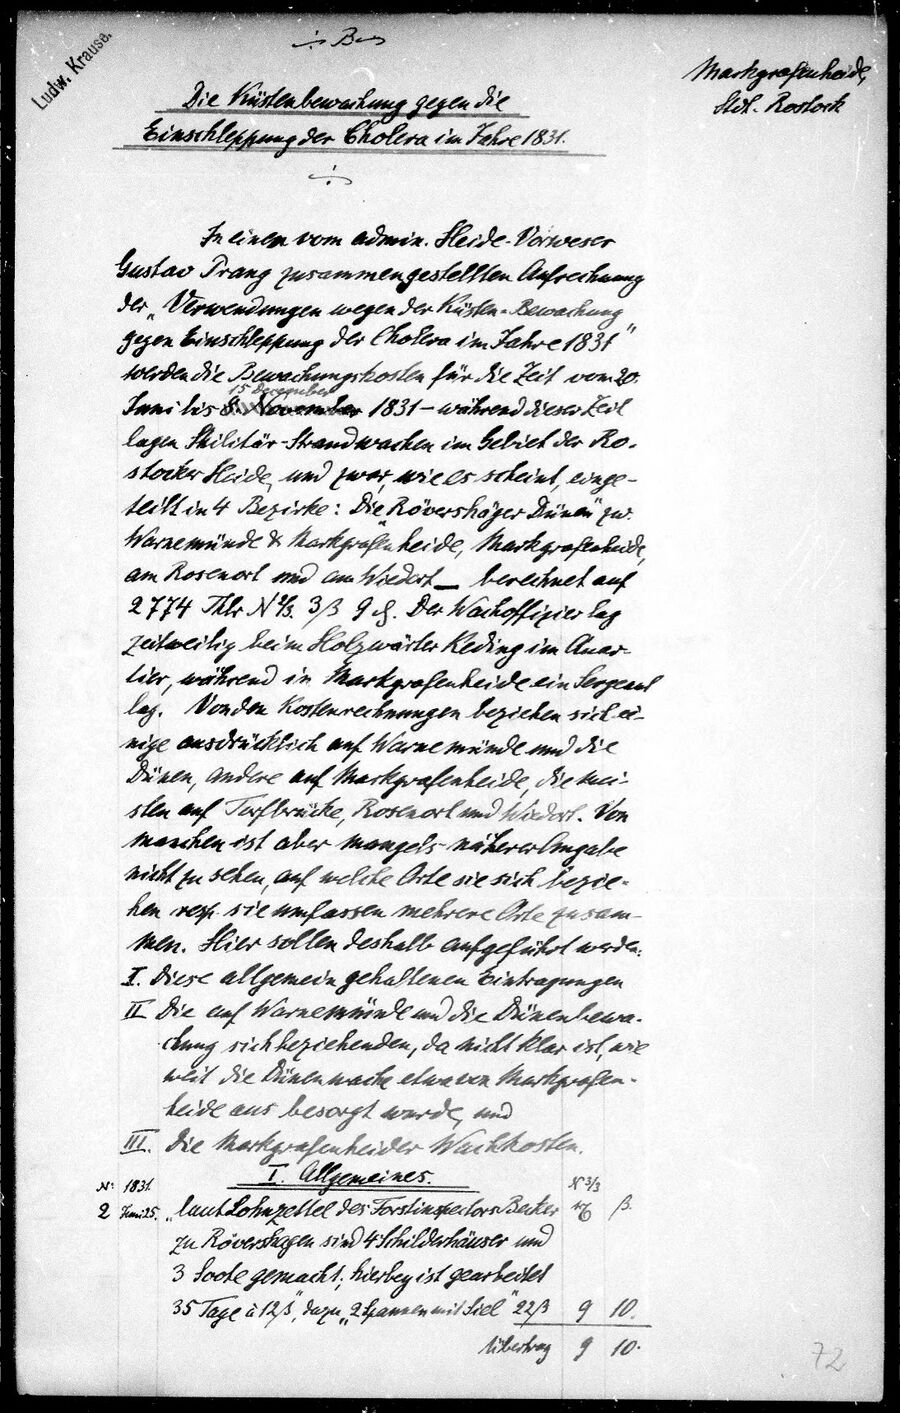 Ludw. Krause.
Markgrafenheide,
Stdt. Rostock
Die Küstenbewachung gegen die
Einschleppung der Cholera im Jahre 1831.
In einem vom admin. Heide-Vorweser
Gustav Prang zusammengestellten Aufrechnung
der „Verwendungen wegen der Küsten-Bewachung
gegen Einschleppung der Cholera im Jahre 1831"
werden die Bewachungskosten für die Zeit vom 20.
15 December
Juni bis 8. November 1831 – während dieser Zeit
lagen Militär-Strandwachen im Gebiet der Ro-
stocker Heide, und zwar, wie es scheint, einge-
teilt in 4 Bezirke: Die „Rövershäger Dünen" zw.
Warnemünde & Markgrafenheide, Markgrafenheide,
am Rosenort und am Wiedort – berechnet auf
2774 Thlr N 2/3. 3 β 9 ₰. Der Wachoffizier lag
zeitweilig beim Holzwärter Keding im Quar-
tier, während in Markgrafenheide ein Sergeant
lag. Von den Kostenrechnungen beziehen sich ei-
nige ausdrücklich auf Warnemünde und die
Dünen, andere auf Markgrafenheide, die mei-
sten auf Torfbrücke, Rosenort und Wiedort. Von
manchen ist aber mangels näherer Angabe
nicht zu sehen, auf welche Orte sie sich bezie-
hen resp. sie umfassen mehrere Orte zusam-
men. Hier sollen deshalb aufgeführt werden:
I. Diese allgemein gehaltenen Eintragungen
II Die auf Warnemünde und die Dünenbewa-
chung sich beziehenden, da nicht klar ist, wie
weit die Dünenwache etwa von Markgrafen-
heide aus besorgt wurde, und
III. Die Markgrafenheider Wachkosten.
I. Allgemeines.
No: 1831. N 2/3
2 Juni 25. „laut Lohnzettel des Forstinspectors Becker β.
zu Rövershagen sind 4 Schilderhäuser und
3 Soote gemacht; hierbey ist gearbeitet
35 Tage à 12 β", dazu „2 Spannen mit Siel" 22 β 9 10.
Übertrag 9 10.
72